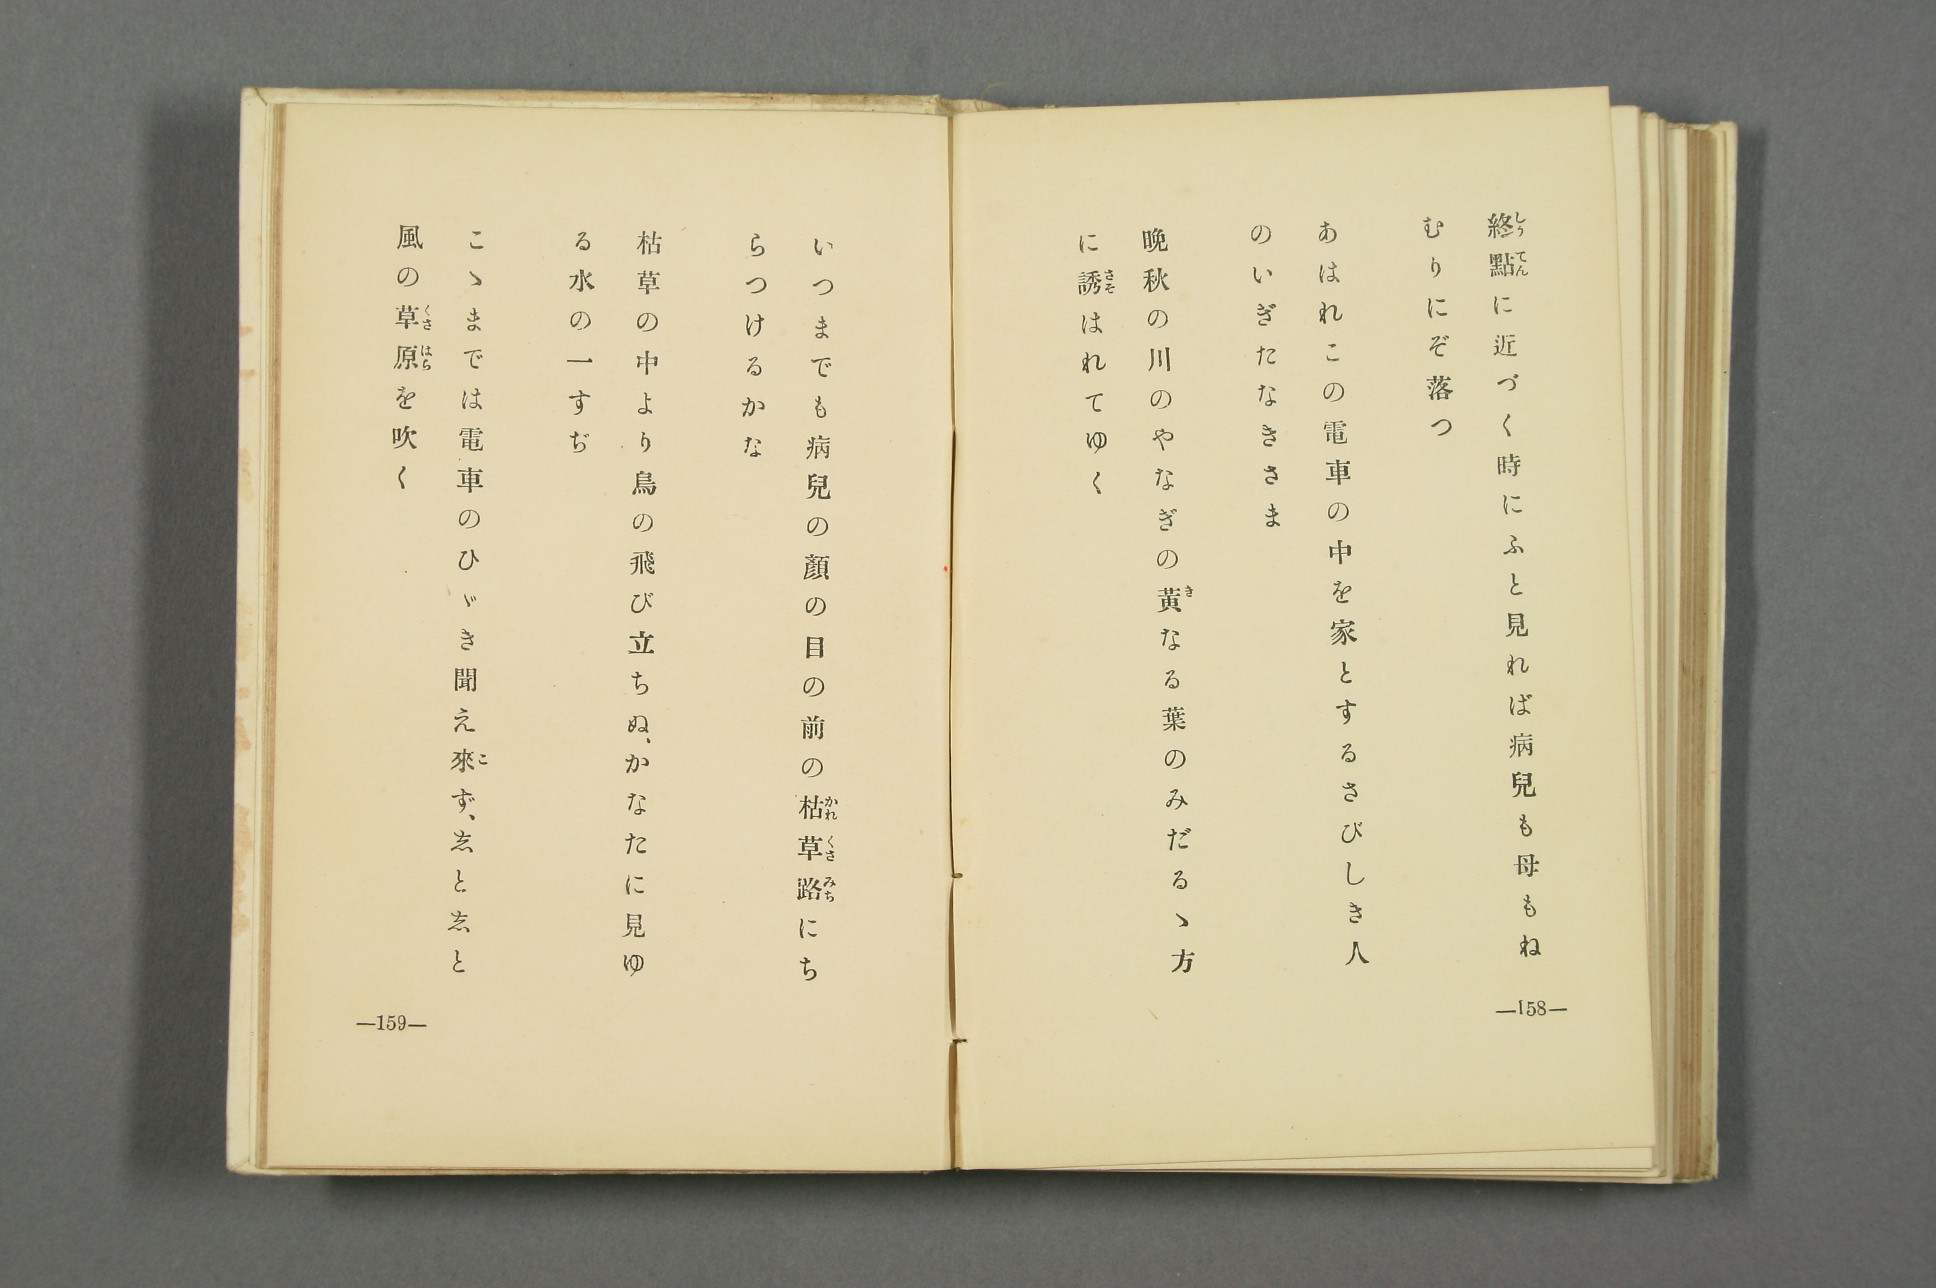 終點に近づく時にふと見れば病兒も母もね
むりにぞ落つ
あはれこの電車の中を家とするさびしき人
のいぎたなきさま
晩秋の川のやなぎの黄なる葉のみだるゝ方
に誘はれてゆく
—158—
いつまでも病兒の顔の目の前の枯草路にち
らつけるかな
枯草の中より鳥の飛び立ちぬ、かなたに見ゆ
る水の一すぢ
こゝまでは電車のひゞき聞え來ず、ゑとゑと
風の草原を吹く
—159—